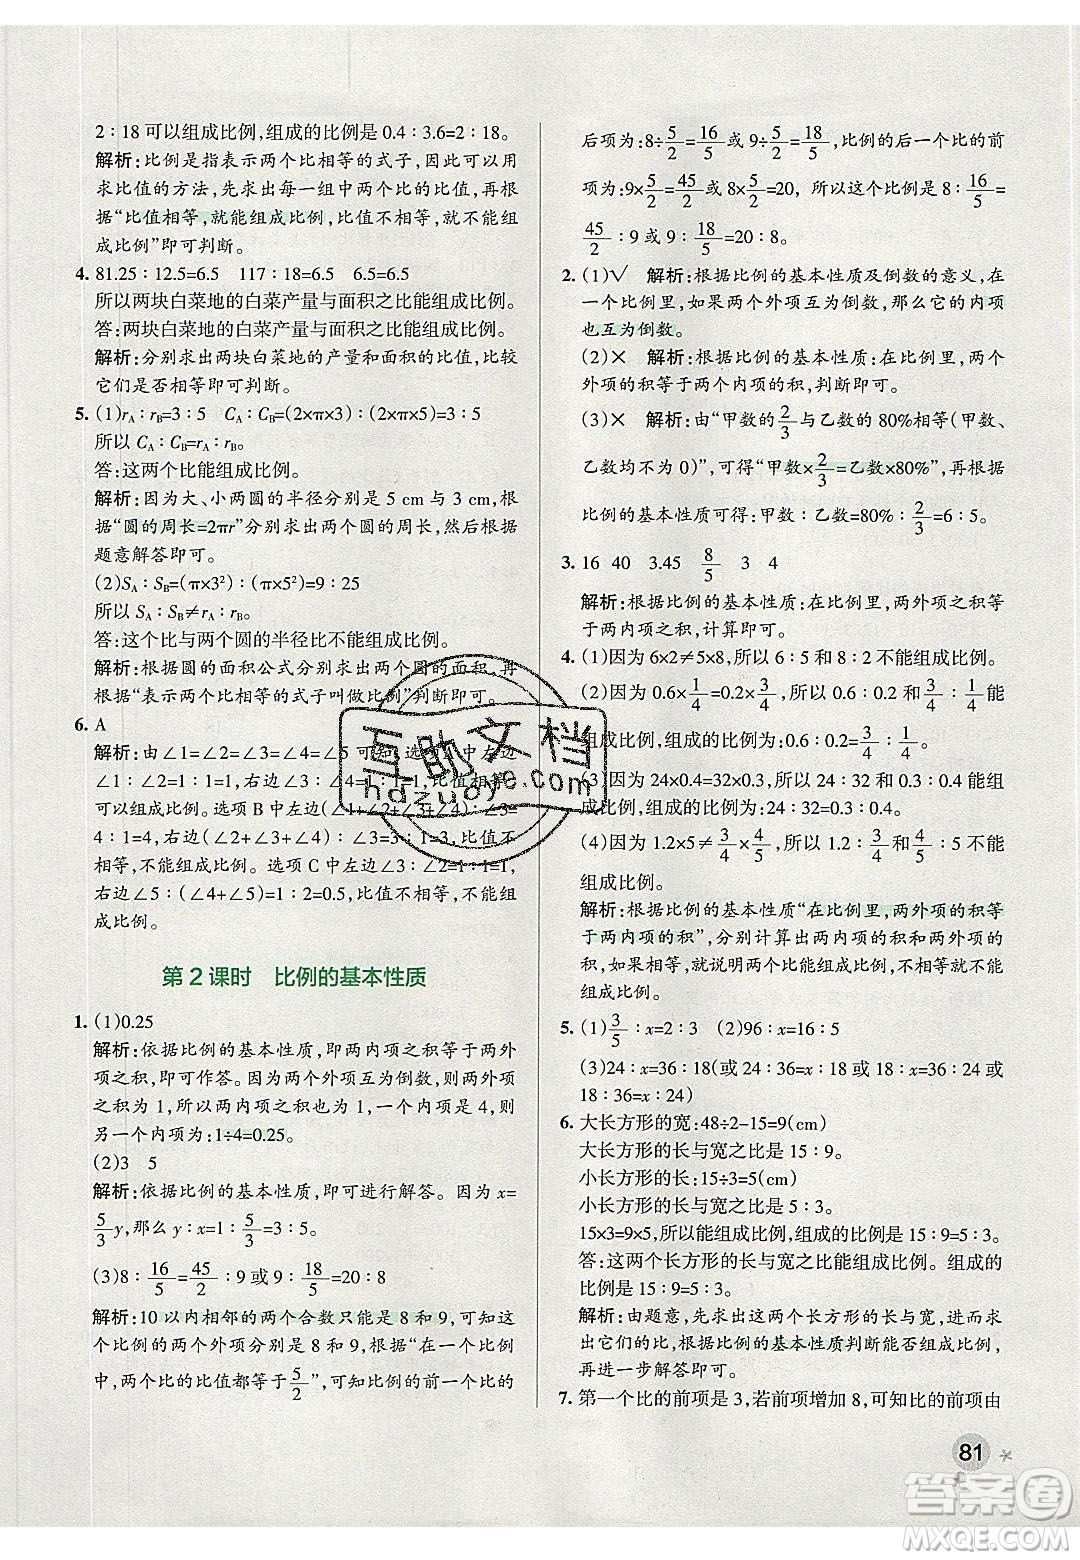 2∶18可以组成比例,组成的比例是0.4∶3.6=2∶18。
解析:比例是指表示两个比相等的式子,因此可以用
求比值的方法,先求出每一组中两个比的比值,再根
据“比值相等,就能组成比例,比值不相等,就不能组
成比例”即可判断。
4. 81.25∶12.5=6.5 117∶18=6.5 6.5=6.5
所以两块白菜地的白菜产量与面积之比能组成比例。
答:两块白菜地的白菜产量与面积之比能组成比例。
解析:分别求出两块白菜地的产量和面积的比值,比较
它们是否相等即可判断。
5. (1)rA∶rB=3∶5 CA∶CB=(2×π×3)∶(2×π×5)=3∶5
所以 CA∶CB=rA∶rB。
答:这两个比能组成比例。
解析:因为大、小两圆的半径分别是 5 cm 与 3 cm,根
据“圆的周长=2πr”分别求出两个圆的周长,然后根据
题意解答即可。
(2)SA∶SB=(π×3²)∶(π×5²)=9∶25
所以 SA∶SB≠rA∶rB。
答:这个比与两个圆的半径比不能组成比例。
解析:根据圆的面积公式分别求出两个圆的面积,再
根据“表示两个比相等的式子叫做比例”判断即可。
6. A
解析:由∠1=∠2=∠3=∠4=∠5可知,选项A中左边
∠1∶∠2=1∶1=1,右边∠3∶∠4=1∶1=1,比值相等,
可以组成比例。选项B中左边(∠1+∠2+∠3+∠4)∶∠3=
4∶1=4,右边(∠2+∠3+∠4)∶∠3=3∶1=3,比值不
相等,不能组成比例。选项C中左边∠3∶∠2=1∶1=1,
右边∠5∶(∠4+∠5)=1∶2=0.5,比值不相等,不能组
成比例。
第2课时 比例的基本性质
1. (1)0.25
解析:依据比例的基本性质,即两内项之积等于两外
项之积,即可作答。因为两个外项互为倒数,则两外项
之积为 1,所以两内项之积也为 1,一个内项是 4,则
另一个内项为:1÷4=0.25。
(2)3 5
解析:依据比例的基本性质,即可进行解答。因为 x=
5/3y,那么 y∶x=1∶5/3=3∶5。
(3)8∶16/5=45/2∶9或9∶18/5=20∶8
解析:10以内相邻的两个合数只能是8和9,可知这
个比例的两个外项分别是8和9,再根据“比例
中,两个比的比值都等于5/2”,可知比例的前一个比的
后项为:8÷5/2=16/5或9÷5/2=18/5,比例的后一个比的前
项为:9×5/2=45/2或8×5/2=20,所以这个比例是8∶16/5=
45/2∶9或9∶18/5=20∶8。
2. (1)√ 解析:根据比例的基本性质及倒数的意义,在
一个比例里,如果两个外项互为倒数,那么它的内项
也互为倒数。
(2)× 解析:根据比例的基本性质:在比例里,两个
外项的积等于两个内项的积,所以此说法错误。
(3)× 解析:由“甲数的2/3与乙数的80%相等(甲数、
乙数均不为0)”,可得“甲数×2/3=乙数×80%”,再根据
比例的基本性质可得:甲数∶乙数=80%∶2/3=6∶5。
3. 16 40 3.45 8/5 3 4
解析:根据比例的基本性质:在比例里,两外项之积等
于两内项之积,计算即可。
4. (1)因为6×2≠5×8,所以6∶5和8∶2不能组成比例。
(2)因为0.6×1/4=0.2×3/4,所以0.6∶0.2和3/4∶1/4能
组成比例,组成的比例为:0.6∶0.2=3/4∶1/4。
(3)因为24×0.4=32×0.3,所以24∶32和0.3∶0.4能组
成比例,组成的比例为:24∶32=0.3∶0.4。
(4)因为1.2×5≠3/4×4/5,所以1.2∶3/4和4/5∶5不能
组成比例。
解析:根据比例的基本性质“在比例里,两外项的积等
于两内项的积”,分别计算出两内项的积和两外项的
积,如果相等,就说明两个比能组成比例,不相等,就不
能组成比例。
5. (1)3/5∶x=2∶3 (2)96∶x=16∶5
(3)24∶x=36∶18(或24∶18=36∶x或18∶36=24∶x或
18∶36=x∶24)
6. 大长方形的宽:48÷2-15=9(cm)
大长方形的长与宽之比是15∶9。
小长方形的长:15÷3=5(cm)
小长方形的长与宽之比是5∶3。
15×3=9×5,所以能组成比例,组成的比例是15∶9=5∶3。
答:这两个长方形的长与宽之比能组成比例。组成的
比例是15∶9=5∶3。
解析:由题意,先求出这两个长方形的长与宽,进而求
出它们的比,根据比例的基本性质判断能否组成比例,
再进一步解答即可。
7. 第一个比的前项是3,若前项增加8,可知比的前项由
81
互助文档
hdzuoye.com
答案圈
MXQE.COM